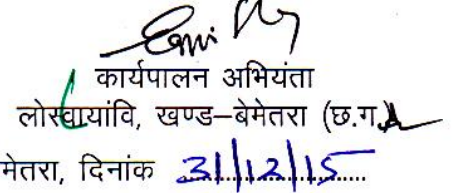 कार्यपालन अभियंता
लोस्वायांवि, खण्ड–बेमेतरा (छ.ग.)
मेतरा, दिनांक 31/12/15